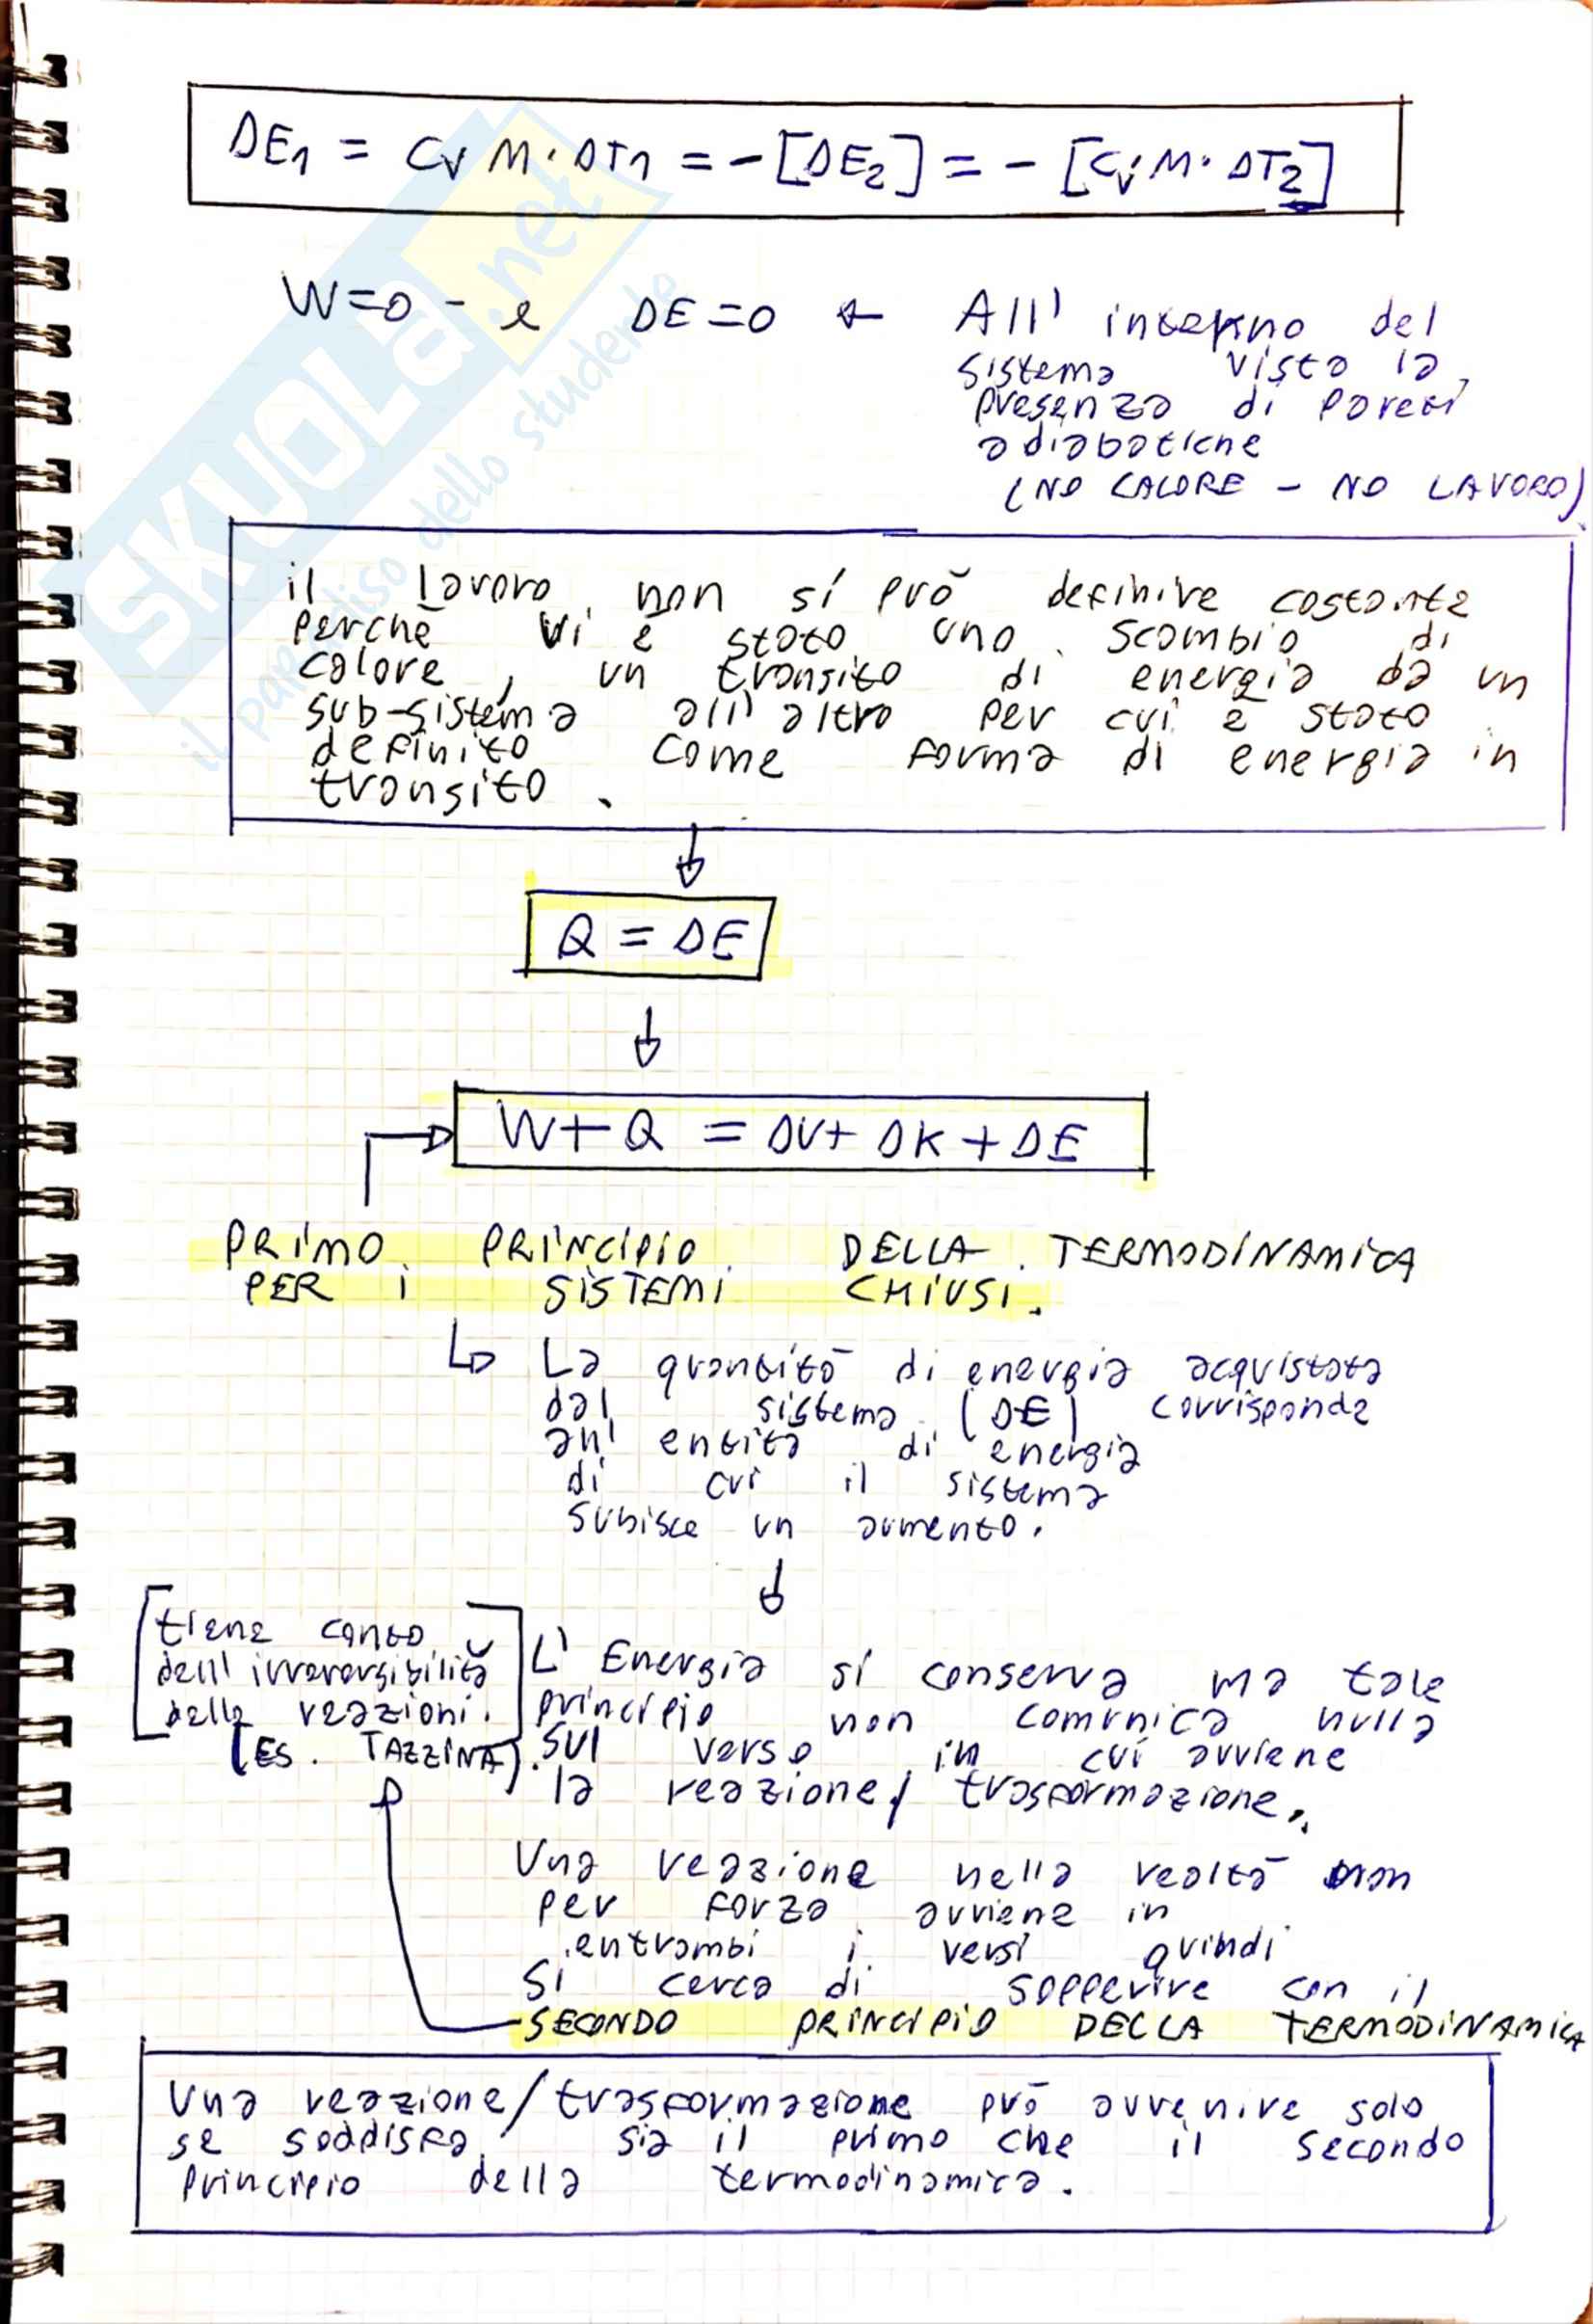 ΔE₁ = Cv M · ΔT₁ = - [ΔE₂] = - [Cv M · ΔT₂]
W=0 - e ΔE=0 ← All' interno del
sistema visto la
presenza di pareti
adiabatiche
(NO CALORE - NO LAVORO)
SKUOLA.net
il paradiso dello studente
il lavoro non si può definire costante
perchè vi è stato uno scambio di
calore, un transito di energia da un
sub-sistema all'altro per cui è stato
definito come forma di energia in
transito.
↓
Q = ΔE
↓
W + Q = ΔU + ΔK + ΔE
PRIMO PRINCIPIO DELLA TERMODINAMICA
PER i SISTEMI CHIUSI.
↳ La quantità di energia acquistata
dal sistema (ΔE) corrisponde
all' entità di energia
di cui il sistema
subisce un aumento.
↓
[tiene conto
dell'irreversibilità
delle reazioni.]
(ES. TAZZINA).
L' Energia si conserva ma tale
principio non comunica nulla
sul verso in cui avviene
la reazione/trasformazione.
Una reazione nella realtà non
per forza avviene in
entrambi i versi quindi
si cerca di sopperire con il
SECONDO PRINCIPIO DELLA TERMODINAMICA
Una reazione/trasformazione può avvenire solo
se soddisfa sia il primo che il secondo
principio della termodinamica.